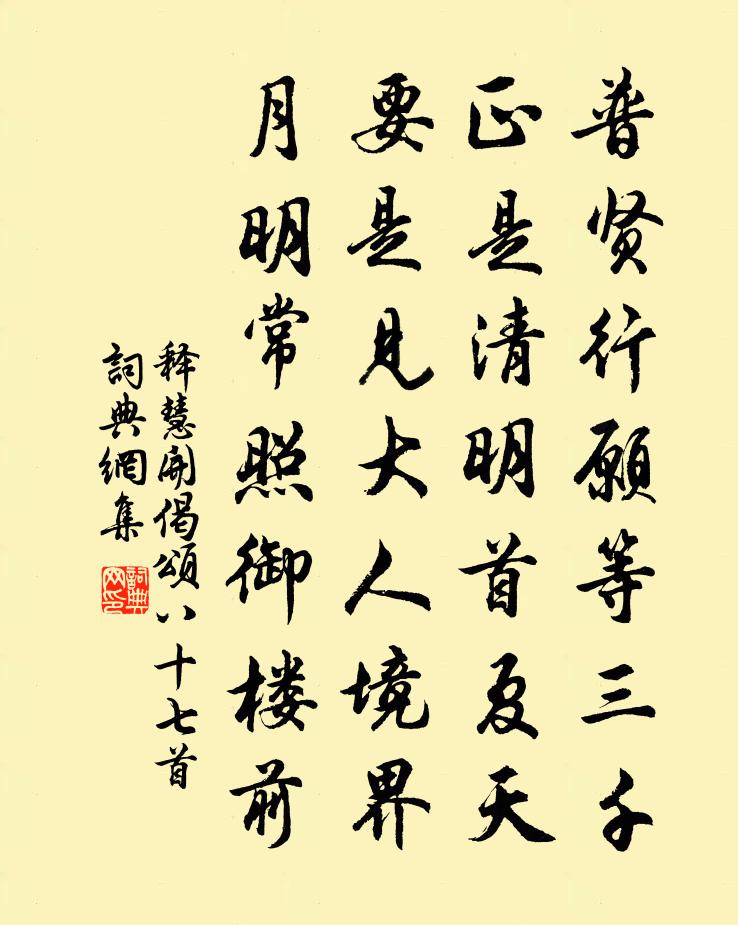 普贤行愿等三千
正是清明首夏天
要是见大人境界
月明常照御楼前
释慧开偈颂八十七首
詞典網集
詞典網印